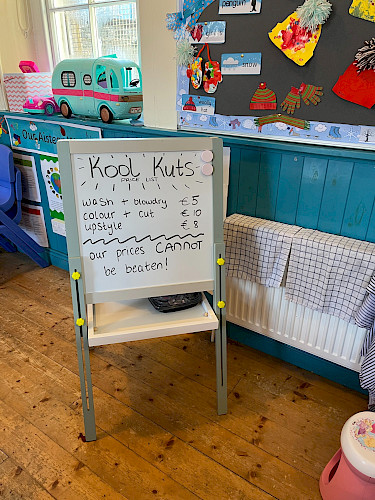 penguin
snow
Our Aistear
Kool Kuts
PRICE LIST
wash + blowdry €5
colour + cut €10
upstyle €8
our prices CANNOT
be beaten!